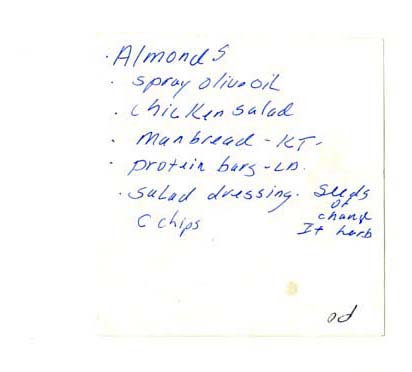 · Almonds
· spray olive oil
· chicken salad
· Manbread - KT -
· protein bars - LD.
· salad dressing. Seeds
of
change
C chips It herb
od